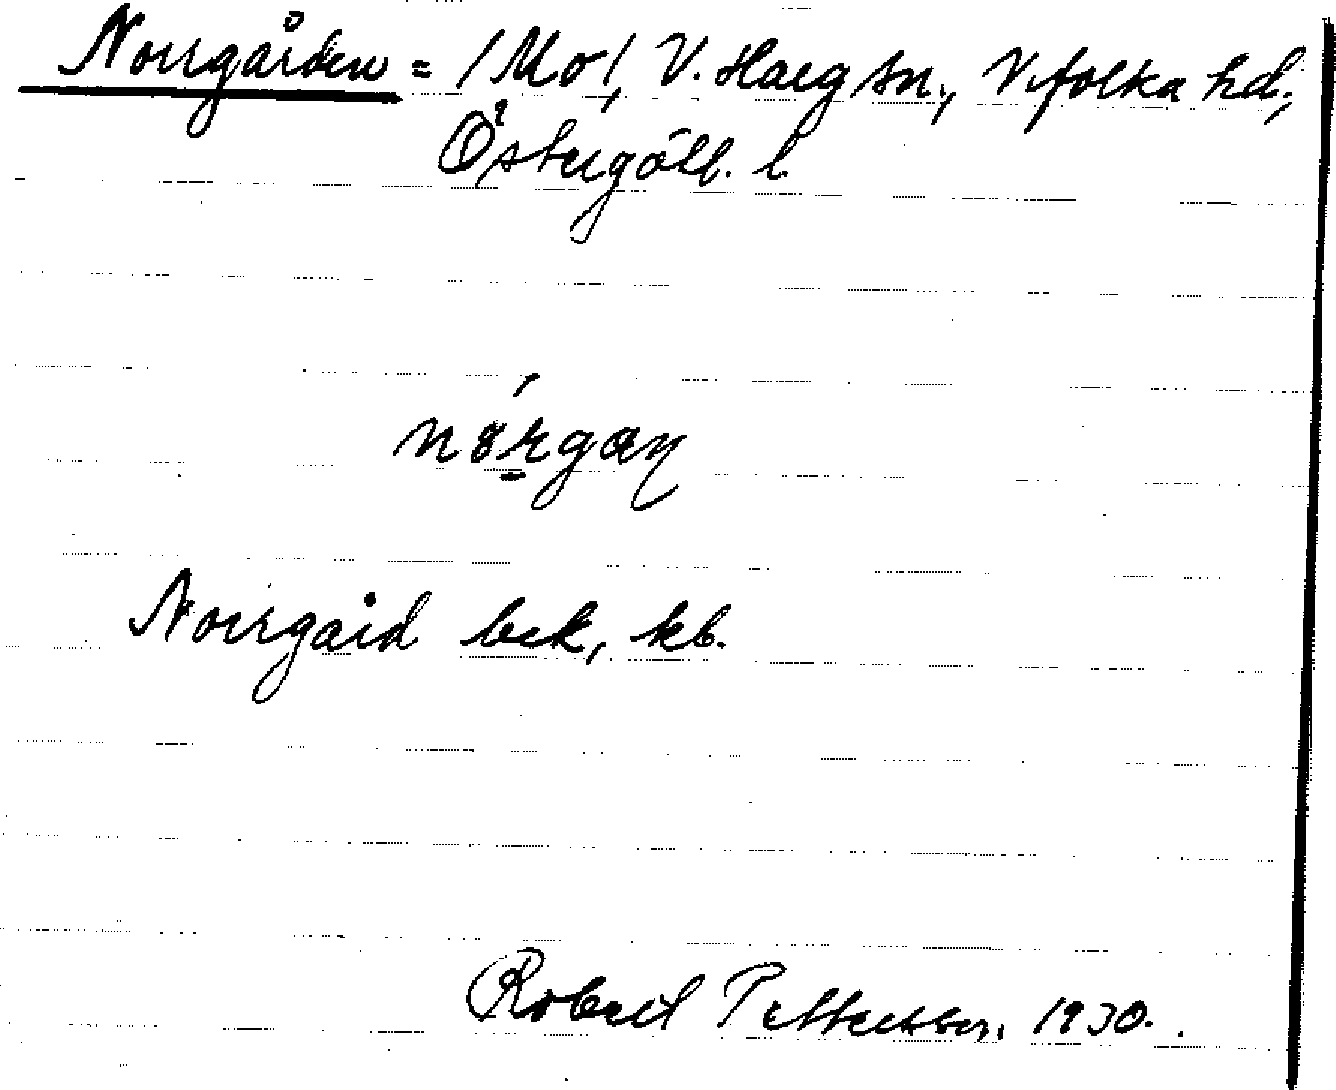 Norrgården = /Mo/, V. Harg sn., Vifolka hd,
Östergötl. l.
nórgaɳ
Norrgård bek, kb.
Robert Pettersson, 1930.